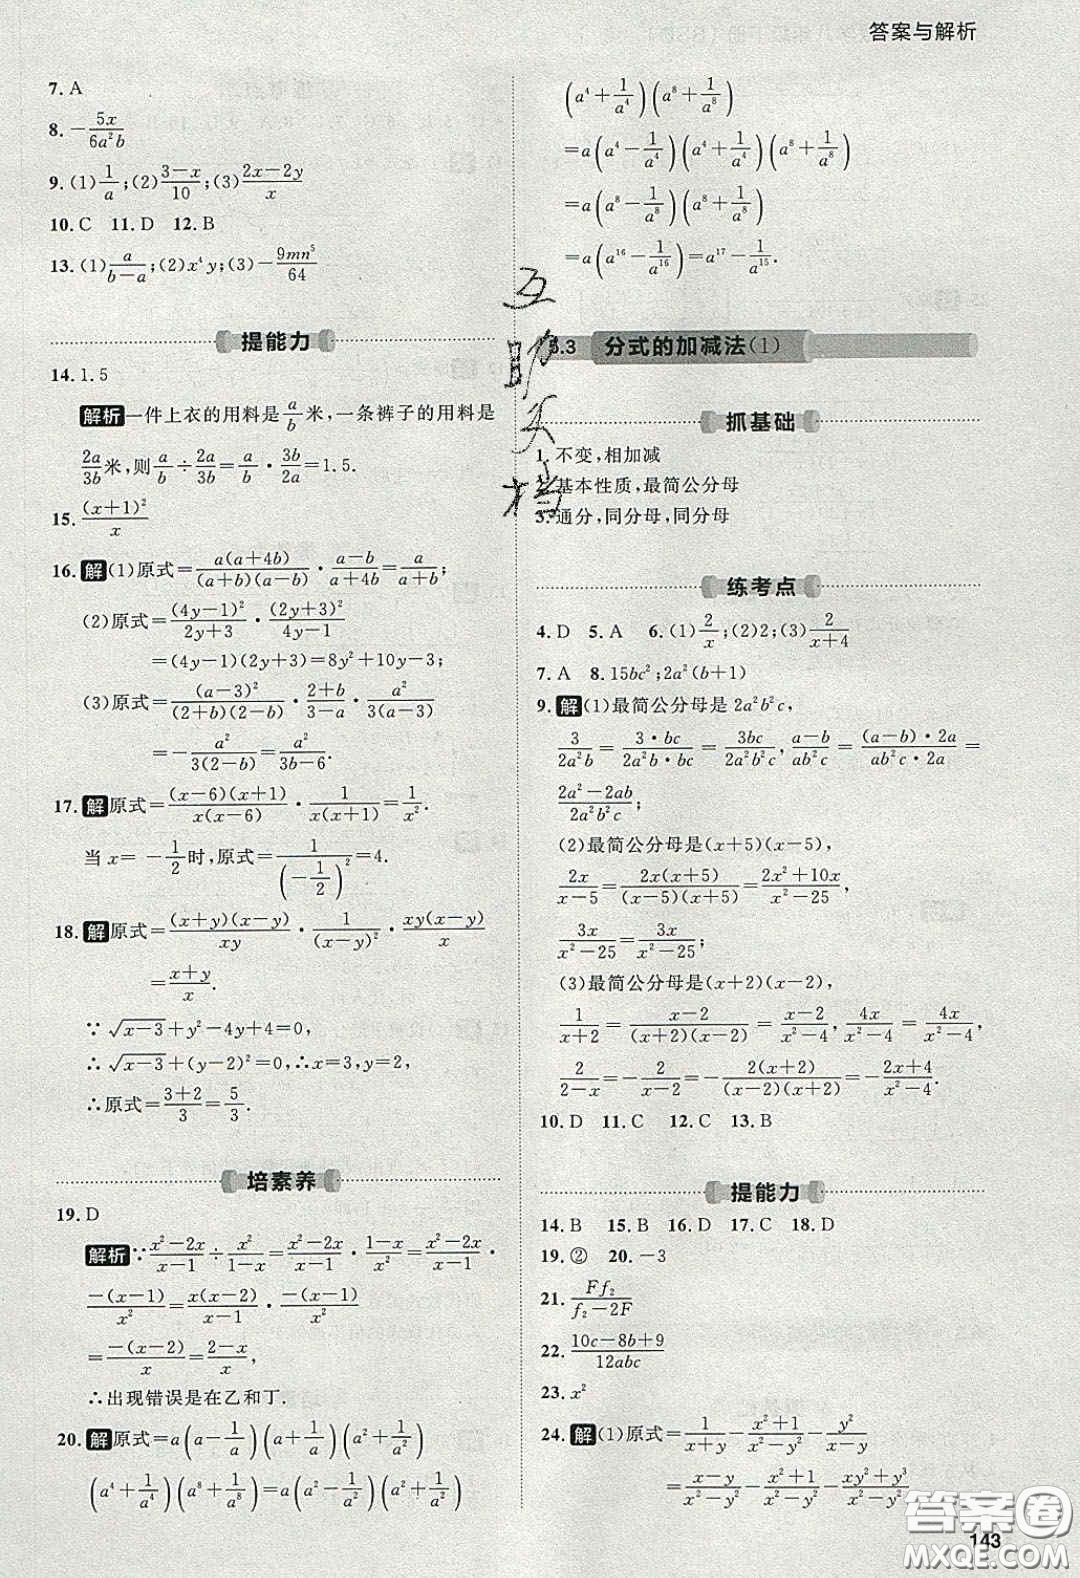 答案与解析
7. A
8. -5x/(6a²b)
9. (1)1/a;(2)(3-x)/10;(3)(2x-2y)/x
10. C 11. D 12. B
13. (1)a/(b-a);(2)x⁴y;(3)-9mn⁵/64
提能力
14. 1.5
解析 一件上衣的用料是a/b米,一条裤子的用料是
2a/3b米,则a/b÷2a/3b=a/b·3b/2a=1.5.
15. (x+1)²/x
16. 解 (1)原式=a(a+4b)/((a+b)(a-b))·(a-b)/(a+4b)=a/(a+b);
(2)原式=(4y-1)²/(2y+3)·(2y+3)²/(4y-1)
=(4y-1)(2y+3)=8y²+10y-3;
(3)原式=(a-3)²/((2+b)(2-b))·(2+b)/(3-a)·a²/(3(a-3))
=-a²/(3(2-b))=a²/(3b-6).
17. 解 原式=(x-6)(x+1)/(x(x-6))·1/(x(x+1))=1/x².
当x=-1/2时,原式=1/(-1/2)²=4.
18. 解 原式=(x+y)(x-y)/xy·1/(x-y)²·xy(x-y)/x
=(x+y)/x.
∵√(x-3)+y²-4y+4=0,
∴√(x-3)+(y-2)²=0,∴x=3,y=2,
∴原式=(3+2)/3=5/3.
培素养
19. D
解析 ∵(x²-2x)/(x-1)÷x²/(1-x)=(x²-2x)/(x-1)·(1-x)/x²=(x²-2x)/(x-1)·
-(x-1)/x²=x(x-2)/(x-1)·-(x-1)/x²
=-(x-2)/x=(2-x)/x,
∴出现错误是在乙和丁.
20. 解 原式=a(a-1/a)(a+1/a)(a²+1/a²)
(a⁴+1/a⁴)(a⁸+1/a⁸)=a(a²-1/a²)(a²+1/a²)
(a⁴+1/a⁴)(a⁸+1/a⁸)
=a(a⁴-1/a⁴)(a⁴+1/a⁴)(a⁸+1/a⁸)
=a(a⁸-1/a⁸)(a⁸+1/a⁸)
=a(a¹⁶-1/a¹⁶)=a¹⁷-1/a¹⁵.
5.3 分式的加减法(1)
抓基础
1. 不变,相加减
2. 基本性质,最简公分母
3. 通分,同分母,同分母
练考点
4. D 5. A 6. (1)2/x;(2)2;(3)2/(x+4)
7. A 8. 15bc²;2a²(b+1)
9. 解 (1)最简公分母是2a²b²c,
3/(2a²b)=3·bc/(2a²b·bc)=3bc/(2a²b²c),(a-b)/(ab²c)=(a-b)·2a/(ab²c·2a)=
(2a²-2ab)/(2a²b²c);
(2)最简公分母是(x+5)(x-5),
2x/(x-5)=2x(x+5)/((x-5)(x+5))=(2x²+10x)/(x²-25),
3x/(x²-25)=3x/(x²-25);
(3)最简公分母是(x+2)(x-2),
1/(x+2)=(x-2)/((x+2)(x-2))=(x-2)/(x²-4),4x/(x²-4)=4x/(x²-4),
2/(2-x)=-2/(x-2)=-2(x+2)/((x-2)(x+2))=-(2x+4)/(x²-4).
10. D 11. C 12. C 13. B
提能力
14. B 15. B 16. D 17. C 18. D
19. ② 20. -3
21. Ff₂/(f₂-2F)
22. (10c-8b+9)/12abc
23. x²
24. 解 (1)原式=1/(x+y)-(x²+1)/(x²-y²)-y²/(x-y)
=(x-y)/(x²-y²)-(x²+1)/(x²-y²)-(xy²+y³)/(x²-y²)
143
互助文档
答案圈
MXQE.COM